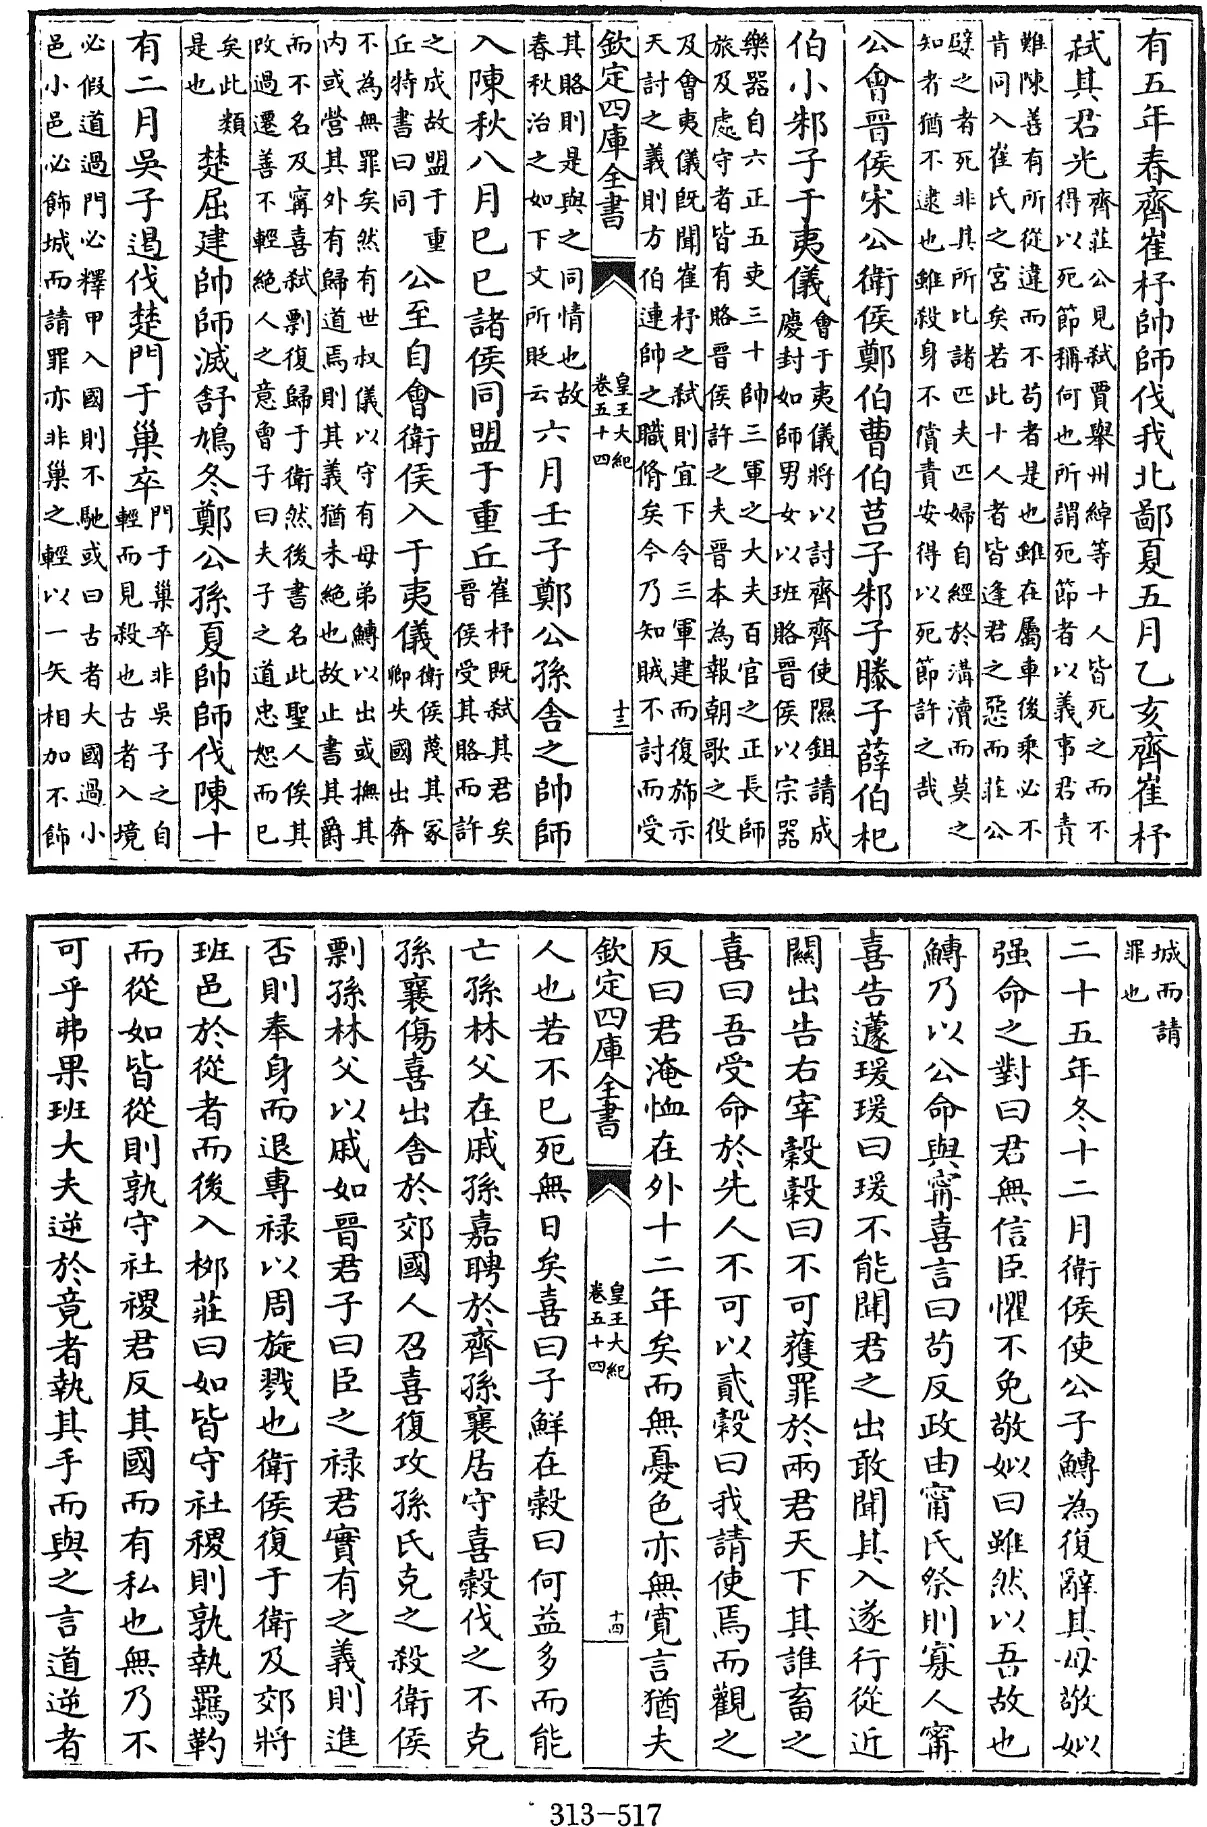 有五年春齊崔杼帥師伐我北鄙夏五月乙亥齊崔杼
弑其君光齊莊公見弑賈舉州綽等十人皆死之而不
得以死節稱何也所謂死節者以義事君責
難陳善有所從違而不苟者是也雖在屬車後乘必不
肯同入崔氏之宮矣若此十人者皆逢君之惡而莊公
嬖之者死非其所比諸匹夫匹婦自經於溝瀆而莫之
知者猶不逮也雖殺身不償責安得以死節許之哉
公會晉侯宋公衛侯鄭伯曹伯莒子邾子滕子薛伯杞
伯小邾子于夷儀會于夷儀將以討齊齊使隰鉏請成
慶封如師男女以班賂晉侯以宗器
樂器自六正五吏三十帥三軍之大夫百官之正長師
旅及處守者皆有賂晉侯許之夫晉本為報朝歌之役
及會夷儀既聞崔杼之弑則宜下令三軍建而復斾示
天討之義則方伯連帥之職脩矣今乃知賊不討而受
欽定四庫全書
皇王大紀
卷五十四
十三
其賂則是與之同情也故
春秋治之如下文所貶云六月壬子鄭公孫舍之帥師
入陳秋八月己巳諸侯同盟于重丘崔杼既弑其君矣
晉侯受其賂而許
之成故盟于重
丘特書曰同公至自會衛侯入于夷儀衛侯蔑其冢
卿失國出奔
不為無罪矣然有世叔儀以守有母弟鱄以出或撫其
内或營其外有歸道焉則其義猶未絶也故止書其爵
而不名及甯喜弑剽復歸于衛然後書名此聖人俟其
改過遷善不輕絶人之意曾子曰夫子之道忠恕而已
矣此類
是也楚屈建帥師滅舒鳩冬鄭公孫夏帥師伐陳十
有二月吳子遏伐楚門于巢卒門于巢卒非吳子之自
輕而見殺也古者入境
必假道過門必釋甲入國則不馳或曰古者大國過小
邑小邑必飾城而請罪亦非巢之輕以一矢相加不飾
城而請
罪也
二十五年冬十二月衛侯使公子鱄為復辭其母敬姒
强命之對曰君無信臣懼不免敬姒曰雖然以吾故也
鱄乃以公命與甯喜言曰苟反政由甯氏祭則寡人甯
喜告蘧瑗瑗曰瑗不能聞君之出敢聞其入遂行從近
關出告右宰穀穀曰不可獲罪於兩君天下其誰畜之
喜曰吾受命於先人不可以貳穀曰我請使焉而觀之
反曰君淹恤在外十二年矣而無憂色亦無寛言猶夫
欽定四庫全書
皇王大紀
卷五十四
十四
人也若不已死無日矣喜曰子鮮在穀曰何益多而能
亡孫林父在戚孫嘉聘於齊孫襄居守喜穀伐之不克
孫襄傷喜出舍於郊國人召喜復攻孫氏克之殺衛侯
剽孫林父以戚如晉君子曰臣之禄君實有之義則進
否則奉身而退專禄以周旋戮也衛侯復于衛及郊將
班邑於從者而後入栁莊曰如皆守社稷則孰執羈靮
而從如皆從則孰守社稷君反其國而有私也無乃不
可乎弗果班大夫逆於竟者執其手而與之言道逆者
313-517